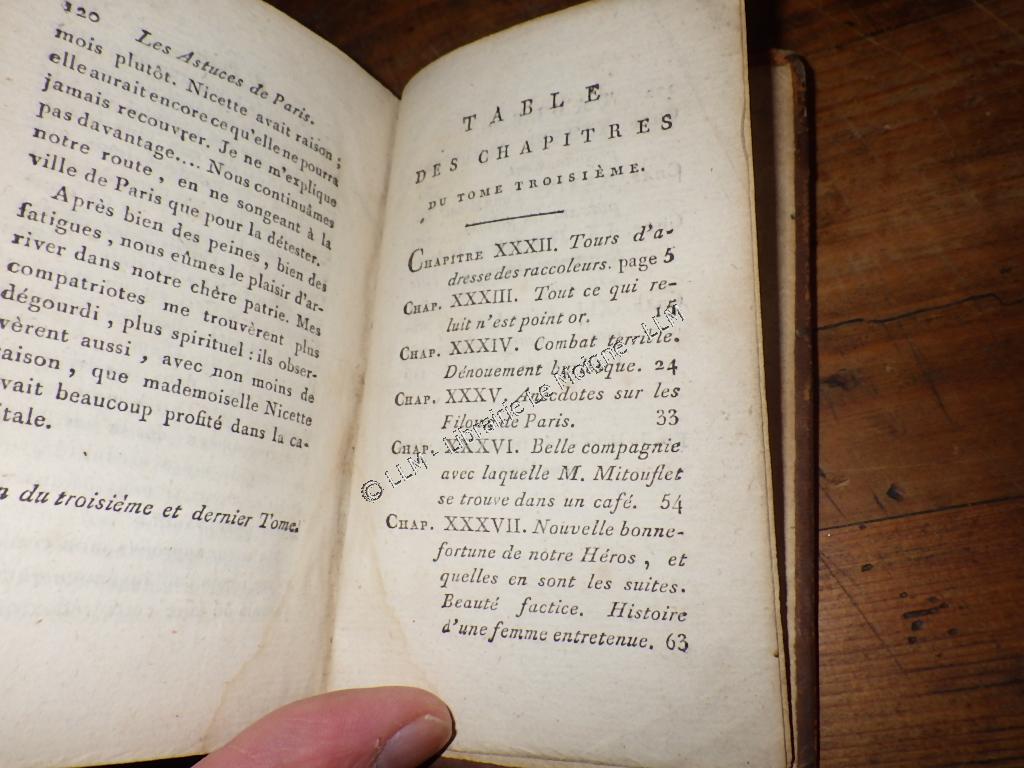 120
Les Astuces de Paris.
mois plutôt. Nicette avait raison ;
elle aurait encore ce qu'elle ne pourra
jamais recouvrer. Je ne m'explique
pas davantage.... Nous continuâmes
notre route, en ne songeant à la
ville de Paris que pour la détester.
Après bien des peines, bien des
fatigues, nous eûmes le plaisir d'ar-
river dans notre chère patrie. Mes
compatriotes me trouvèrent plus
dégourdi, plus spirituel : ils obser-
vèrent aussi, avec non moins de
raison, que mademoiselle Nicette
avait beaucoup profité dans la ca-
itale.
n du troisiéme et dernier Tome.
TABLE
DES CHAPITRES
DU TOME TROISIÈME.
CHAPITRE XXXII. Tours d'a-
dresse des raccoleurs. page 5
CHAP. XXXIII. Tout ce qui re-
luit n'est point or. 15
CHAP. XXXIV. Combat terrible.
Dénouement burlesque. 24
CHAP. XXXV. Anecdotes sur les
Filoux de Paris. 33
CHAP. XXXVI. Belle compagnie
avec laquelle M. Mitouflet
se trouve dans un café. 54
CHAP. XXXVII. Nouvelle bonne-
fortune de notre Héros, et
quelles en sont les suites.
Beauté factice. Histoire
d'une femme entretenue. 63
© LLM - Librairie Le Moigne - LLM